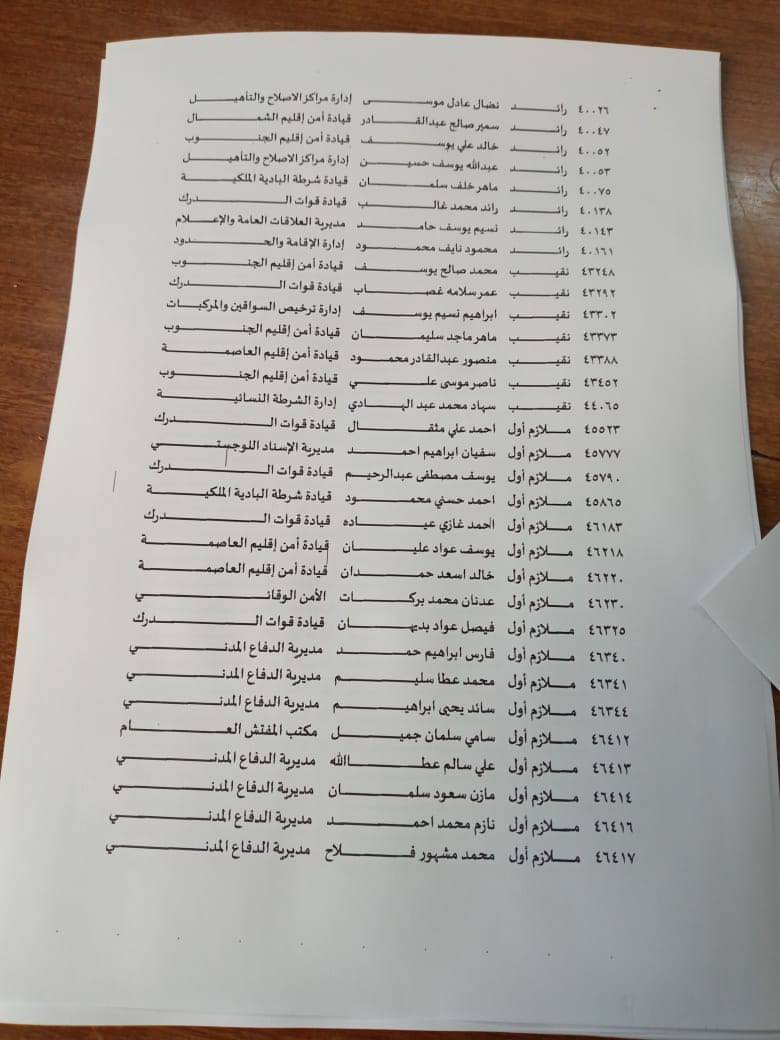 ٤٠٠٢٦ رائد نضال عادل موسى إدارة مراكز الاصلاح والتأهيل
٤٠٠٤٧ رائد سمير صالح عبدالقادر قيادة أمن إقليم الشمال
٤٠٠٥٢ رائد خالد علي يوسف قيادة أمن إقليم الجنوب
٤٠٠٥٣ رائد عبدالله يوسف حسين إدارة مراكز الاصلاح والتأهيل
٤٠٠٧٥ رائد ماهر خلف سلمان قيادة شرطة البادية الملكية
٤٠١٣٨ رائد رائد محمد غالب قيادة قوات الدرك
٤٠١٤٣ رائد نسيم يوسف حامد مديرية العلاقات العامة والإعلام
٤٠١٦١ رائد محمود نايف محمود إدارة الإقامة والحدود
٤٣٢٤٨ نقيب محمد صالح يوسف قيادة أمن إقليم الجنوب
٤٣٢٩٢ نقيب عمر سلامه غصاب قيادة قوات الدرك
٤٣٣٠٢ نقيب ابراهيم نسيم يوسف إدارة ترخيص السواقين والمركبات
٤٣٣٧٣ نقيب ماهر ماجد سليمان قيادة أمن إقليم الجنوب
٤٣٣٨٨ نقيب منصور عبدالقادر محمود قيادة أمن إقليم العاصمة
٤٣٤٥٢ نقيب ناصر موسى علي قيادة أمن إقليم الجنوب
٤٤٠٦٥ نقيب سهاد محمد عبد الهادي إدارة الشرطة النسائية
٤٥٥٢٣ ملازم أول احمد علي مثقال قيادة قوات الدرك
٤٥٧٧٧ ملازم أول سفيان ابراهيم احمد مديرية الإسناد اللوجستي
٤٥٧٩٠ ملازم أول يوسف مصطفى عبدالرحيم قيادة قوات الدرك
٤٥٨٦٥ ملازم أول احمد حسني محمود قيادة شرطة البادية الملكية
٤٦١٨٣ ملازم أول احمد غازي عياده قيادة قوات الدرك
٤٦٢١٨ ملازم أول يوسف عواد عليان قيادة أمن إقليم العاصمة
٤٦٢٢٠ ملازم أول خالد اسعد حمدان قيادة أمن إقليم العاصمة
٤٦٢٣٠ ملازم أول عدنان محمد بركات الأمن الوقائي
٤٦٣٢٥ ملازم أول فيصل عواد بديهان قيادة قوات الدرك
٤٦٣٤٠ ملازم أول فارس ابراهيم حمد مديرية الدفاع المدني
٤٦٣٤١ ملازم أول محمد عطا سليم مديرية الدفاع المدني
٤٦٣٤٤ ملازم أول سائد يحيى ابراهيم مديرية الدفاع المدني
٤٦٤١٢ ملازم أول سامي سلمان جميل مكتب المفتش العام
٤٦٤١٣ ملازم أول علي سالم عطاالله مديرية الدفاع المدني
٤٦٤١٤ ملازم أول مازن سعود سلمان مديرية الدفاع المدني
٤٦٤١٦ ملازم أول نازم محمد احمد مديرية الدفاع المدني
٤٦٤١٧ ملازم أول محمد مشهور فلاح مديرية الدفاع المدني